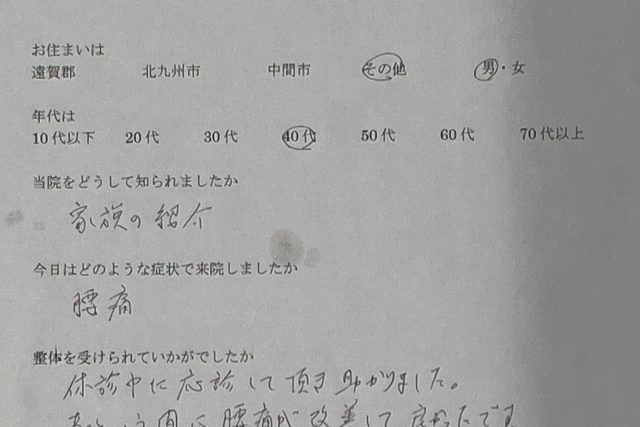 お住まいは
遠賀郡 北九州市 中間市 その他 男・女
年代は
10代以下 20代 30代 40代 50代 60代 70代以上
当院をどうして知られましたか
家族の紹介
今日はどのような症状で来院しましたか
腰痛
整体を受けられていかがでしたか
休診中に応診して頂き助かりました。
あっという間に腰痛が改善して良かったです